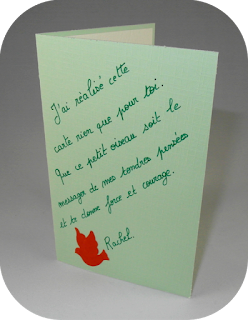 J'ai réalisé cette
carte rien que pour toi.
Que ce petit oiseau soit le
messager de mes tendres pensées
et te donne force et courage.
Rachel